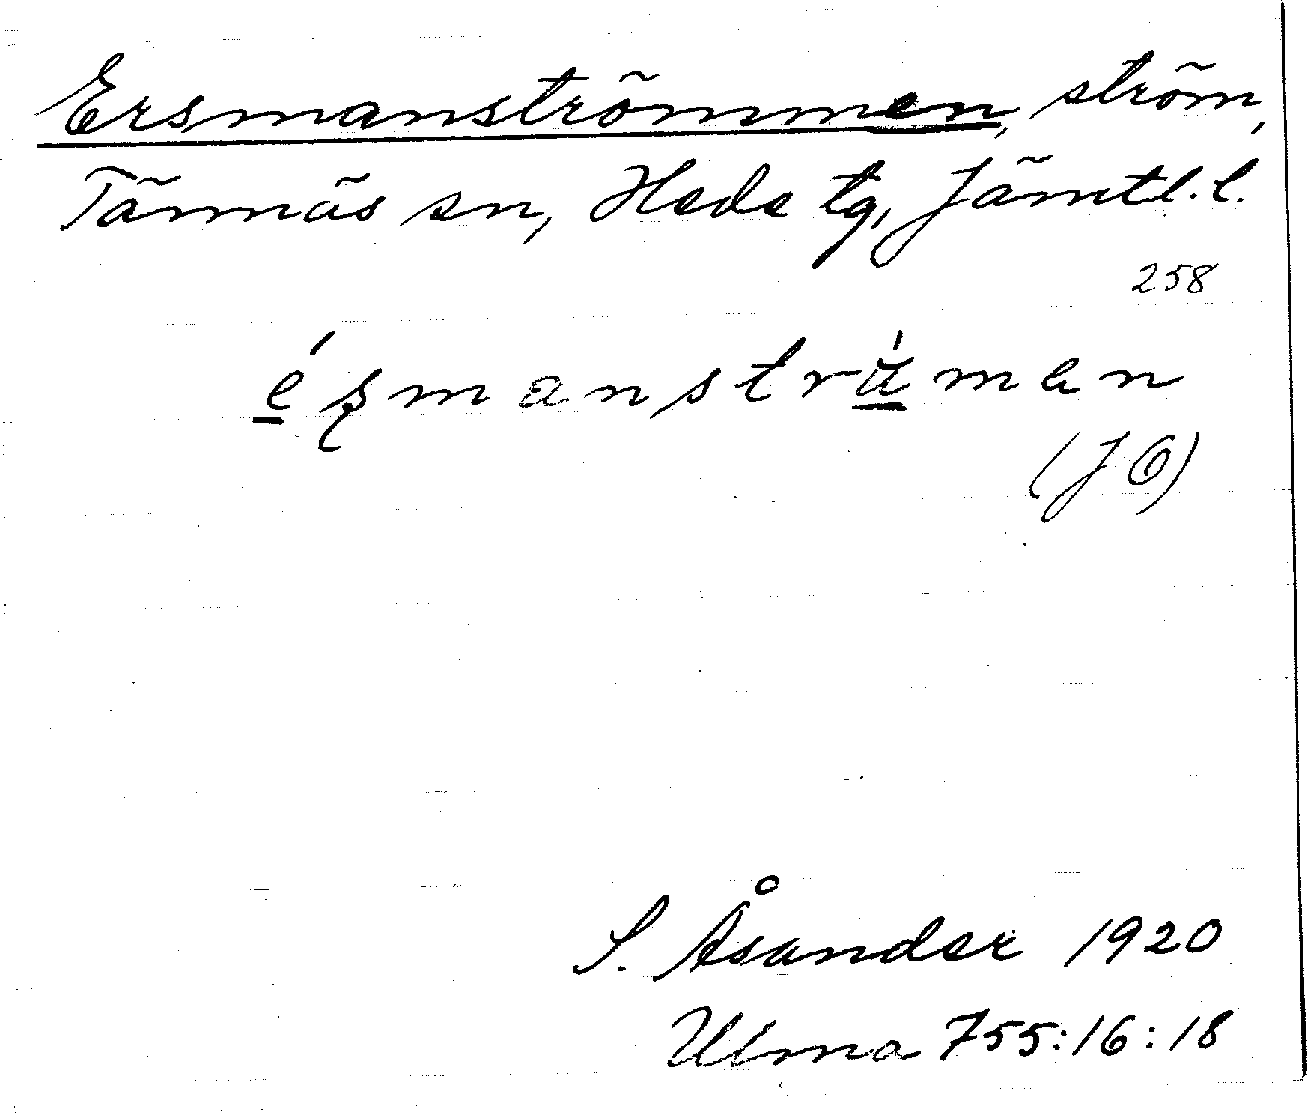 Ersmanströmmen, ström,
Tännäs sn, Hede tg, Jämtl.l.
258
é̱ʂmanströ̱́man
(JÖ)
S. Åsander 1920
Ulma 755:16:18